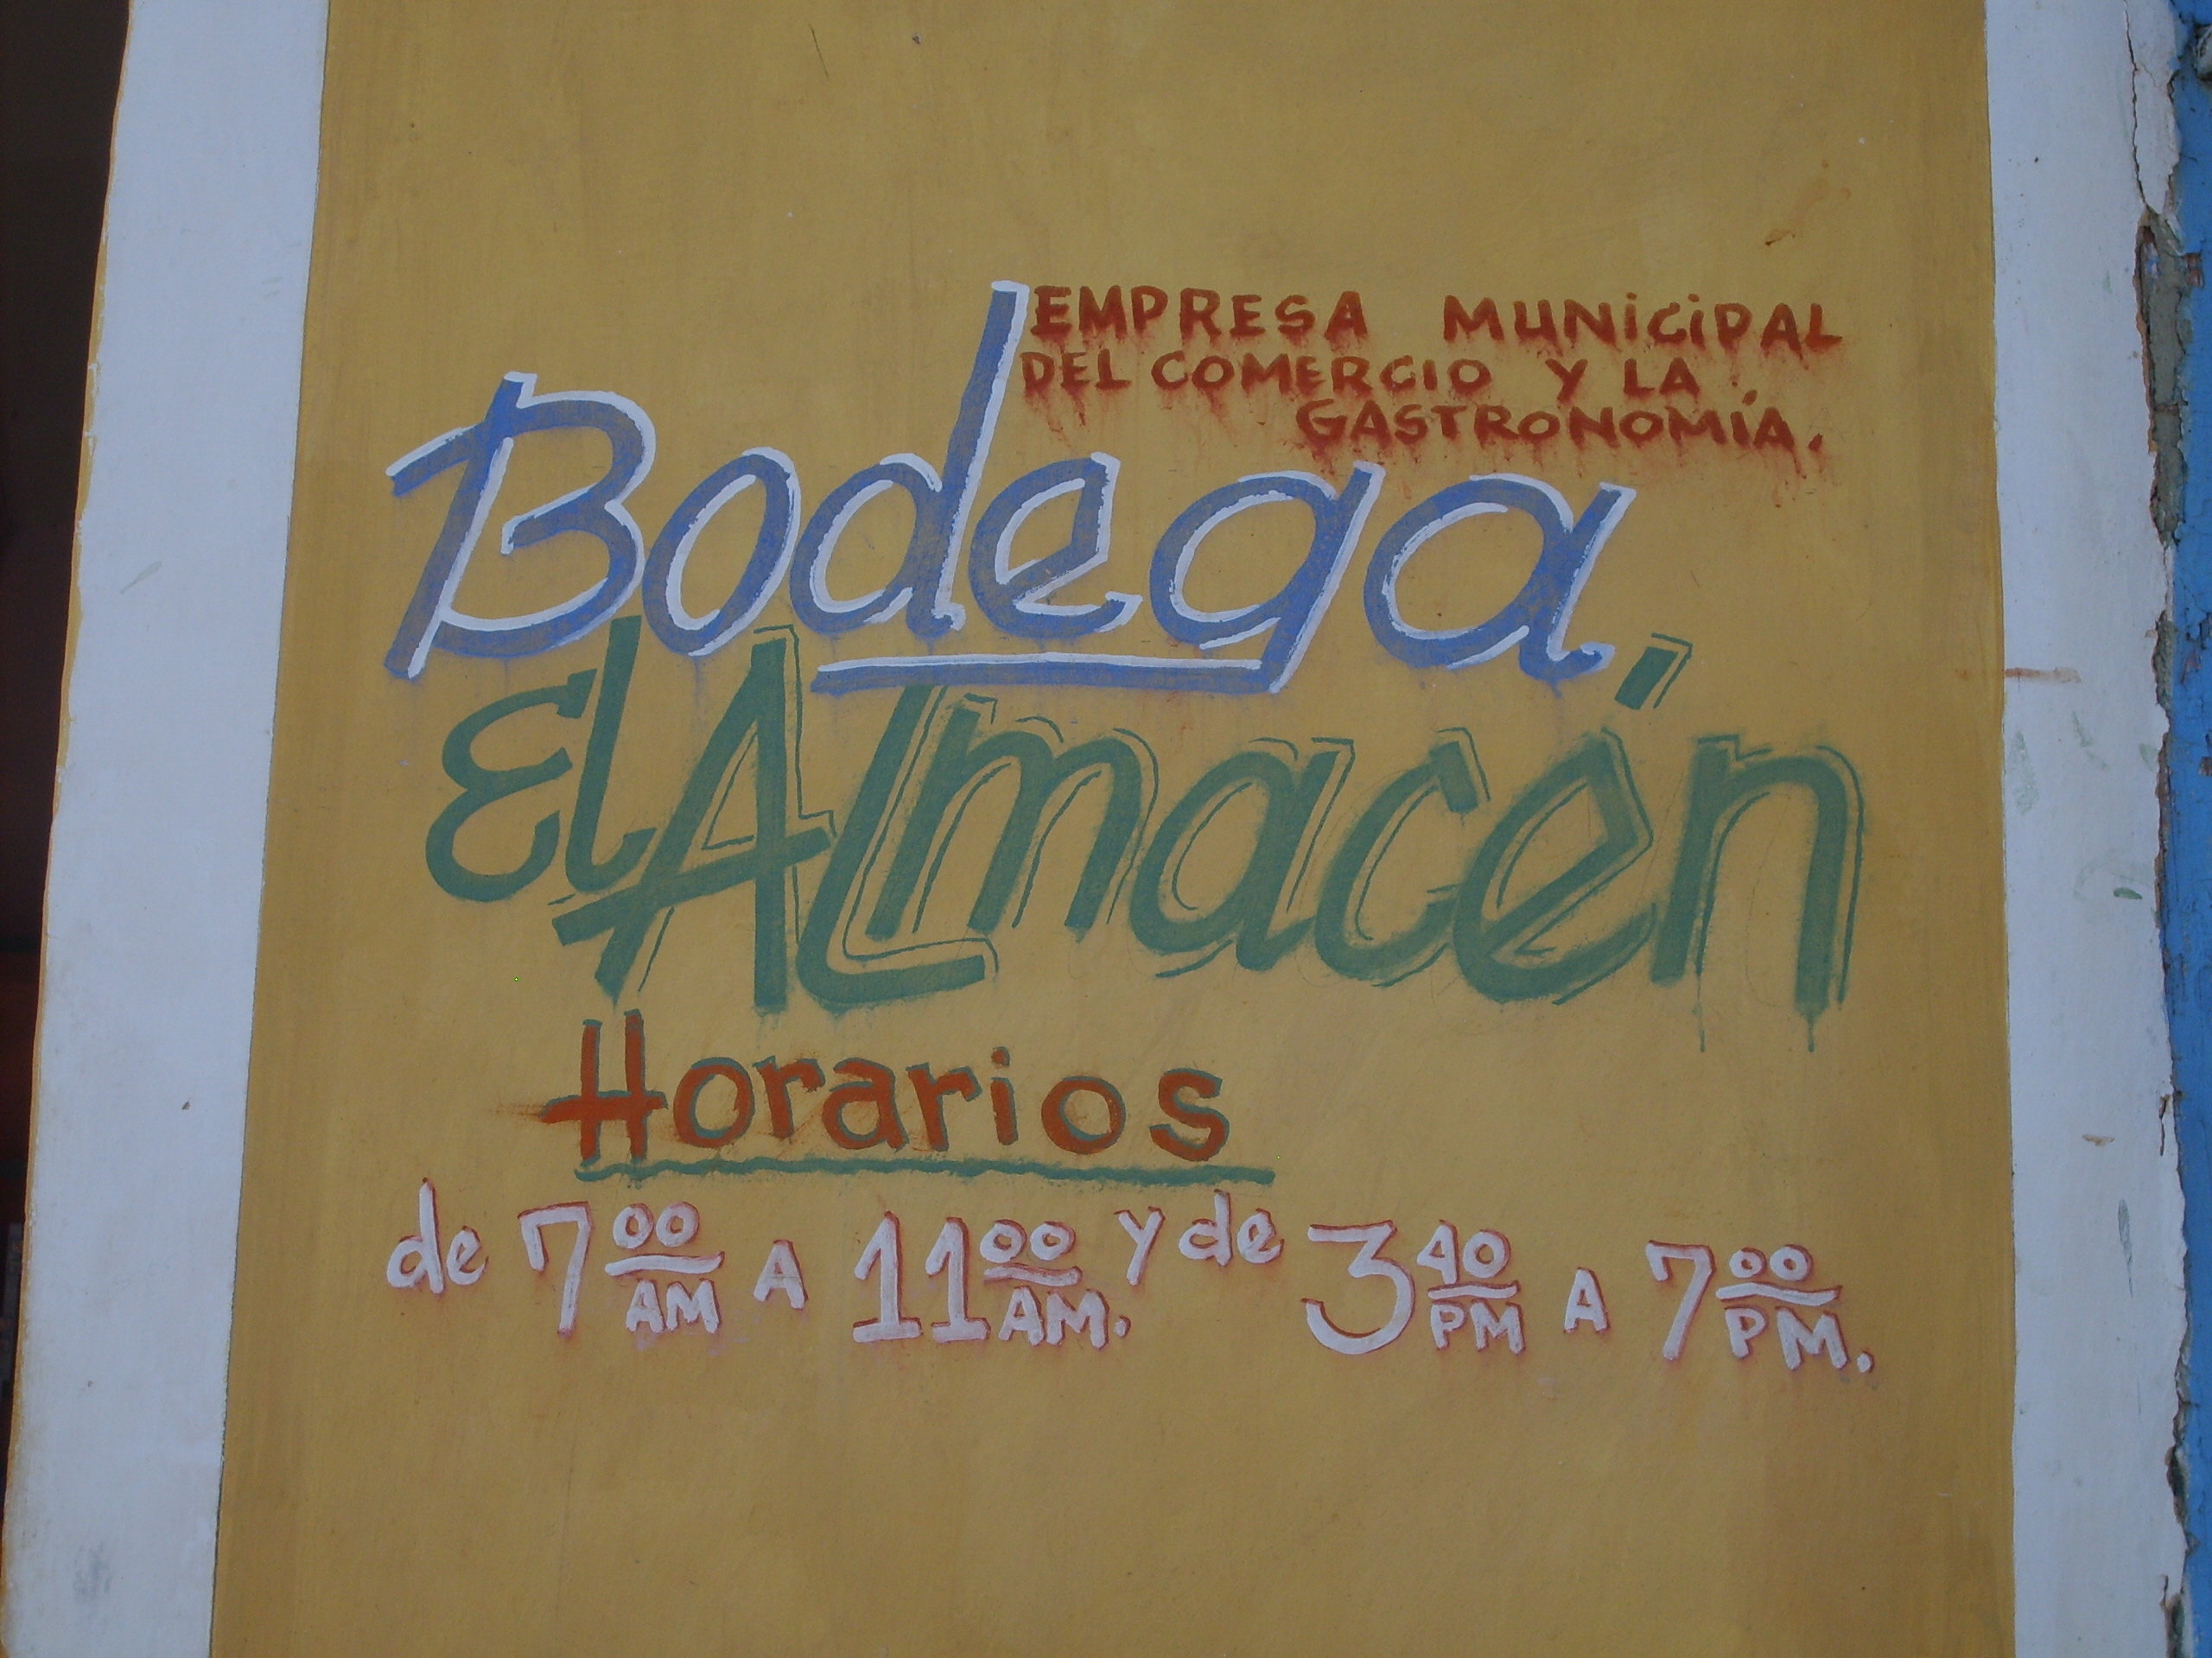 EMPRESA MUNICIPAL
DEL COMERCIO Y LA
GASTRONOMÍA.
Bodega
El ALmacén
Horarios
de 7 00 AM A 11 00 AM. y de 3 40 PM A 7 00 PM.